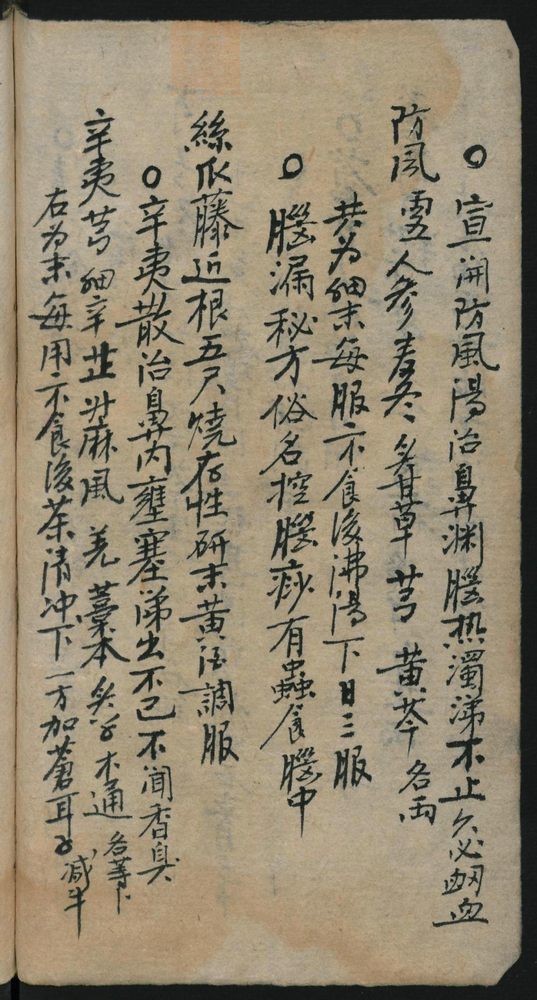 ○宣開防風湯治鼻渊腦热濁涕不止久必衂血
防風 人参麦冬炙甘草芎黄芩各両
共为細末每服二不食後沸湯下日三服
○腦漏秘方俗名控腦痧有蟲食腦中
絲瓜藤近根五尺燒存性研末黄酒調服
○辛夷散治鼻內壅塞涕出不已不闻香臭
辛夷芎細辛芷升麻風羌藁本炙甘木通各等卜
右为末每用二不食後茶清冲下一方加蒼耳子减半